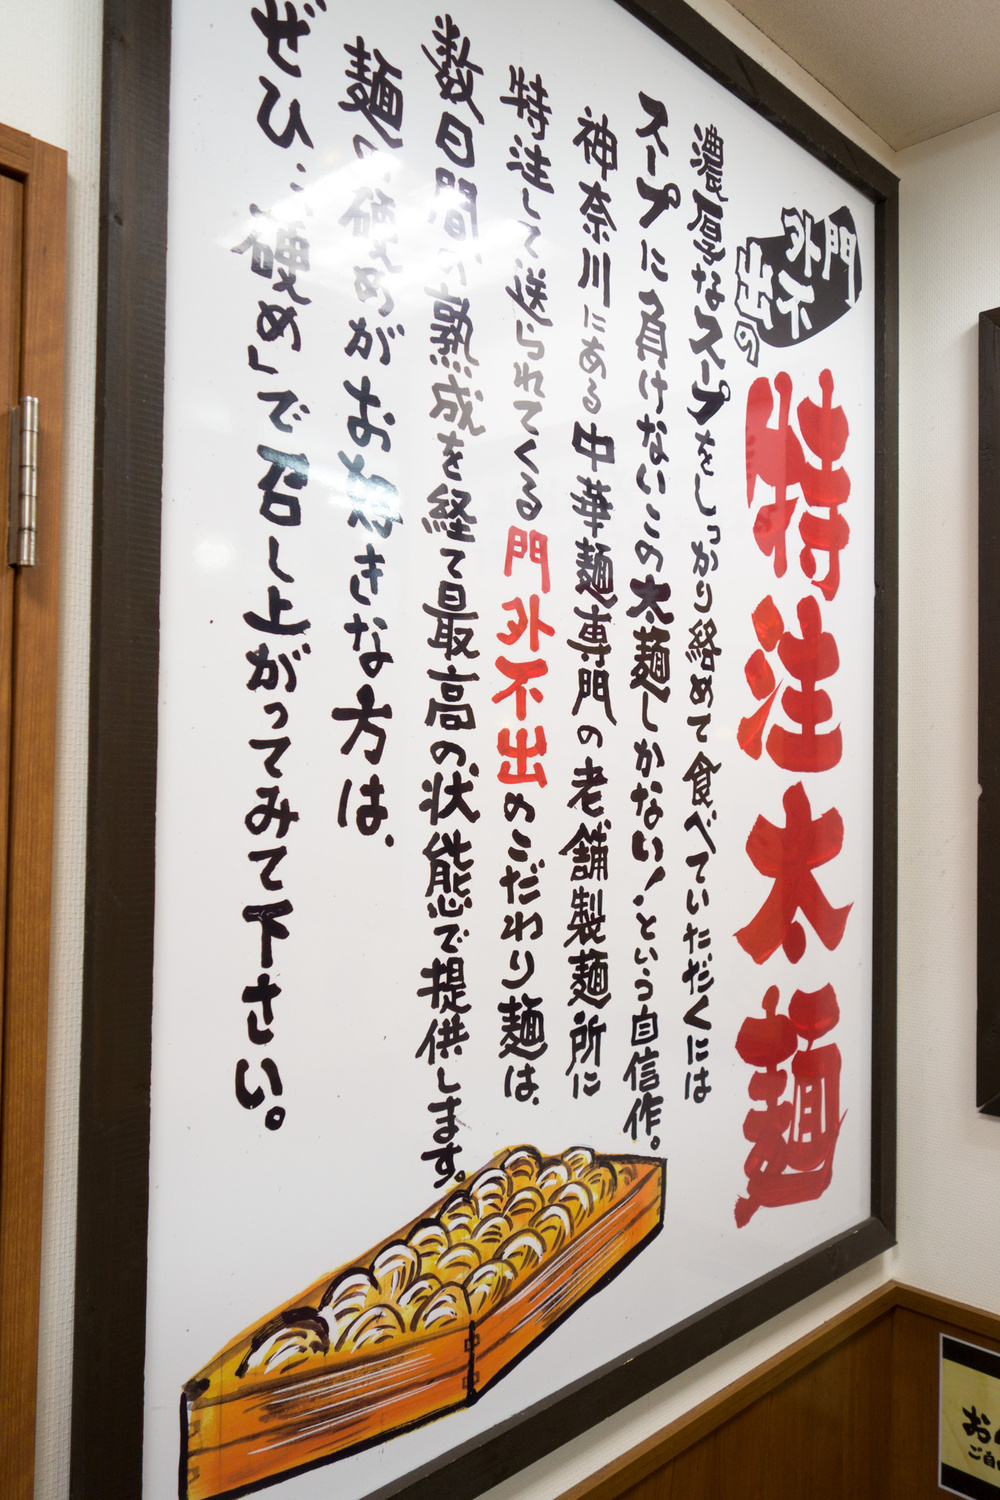 門外不出の
特注太麺
濃厚なスープをしっかり絡めて食べていただくには
スープに負けないこの太麺しかない！という自信作。
神奈川にある中華麺専門の老舗製麺所に
特注して送られてくる門外不出のこだわり麺は、
数日間の熟成を経て最高の状態で提供します。
麺の硬めがお好きな方は、
ぜひ「硬め」で召し上がってみて下さい。
お
ご自